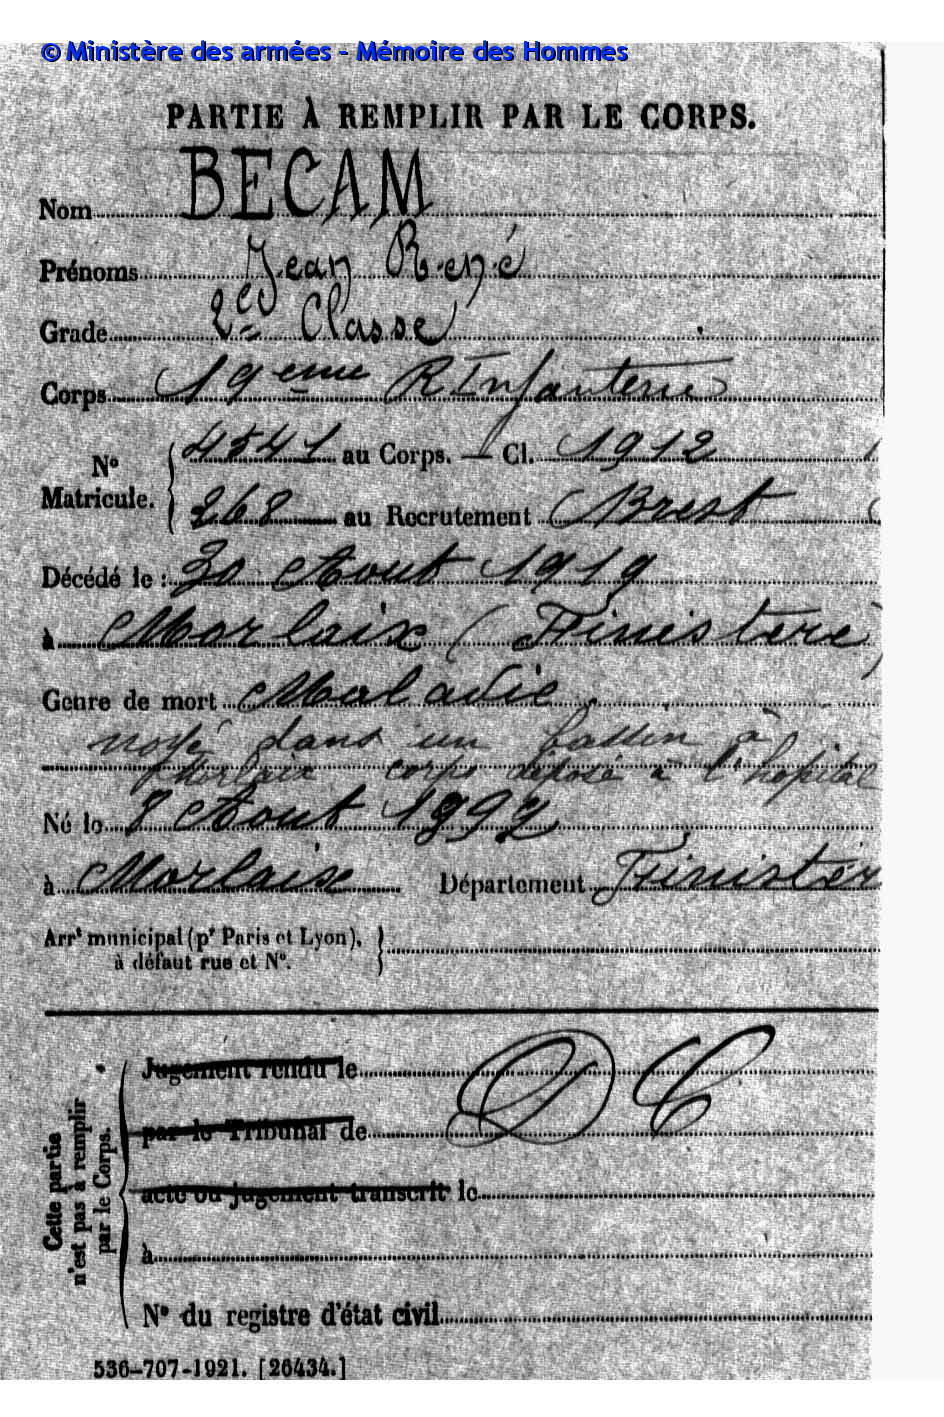 © Ministère des armées - Mémoire des Hommes
PARTIE À REMPLIR PAR LE CORPS.
Nom BECAM
Prénoms Jean René
Grade 2e Classe
Corps 19eme R Infanterie
N° Matricule. 4541 au Corps. — Cl. 1912
268 au Recrutement Brest
Décédé le : 30 Aout 1919
à Morlaix (Finistere)
Genre de mort Maladie
noyé dans un bassin à
Morlaix corps déposé à l'hopital
Né le 8 Aout 1892
à Morlaix Département Finistèr
Arrt municipal (pr Paris et Lyon),
à défaut rue et N°.
Cette partie
n'est pas à remplir
par le Corps.
Jugement rendu le
par le Tribunal de
acte ou jugement transcrit le
à
N° du registre d'état civil
D C
536-707-1921. [26434.]